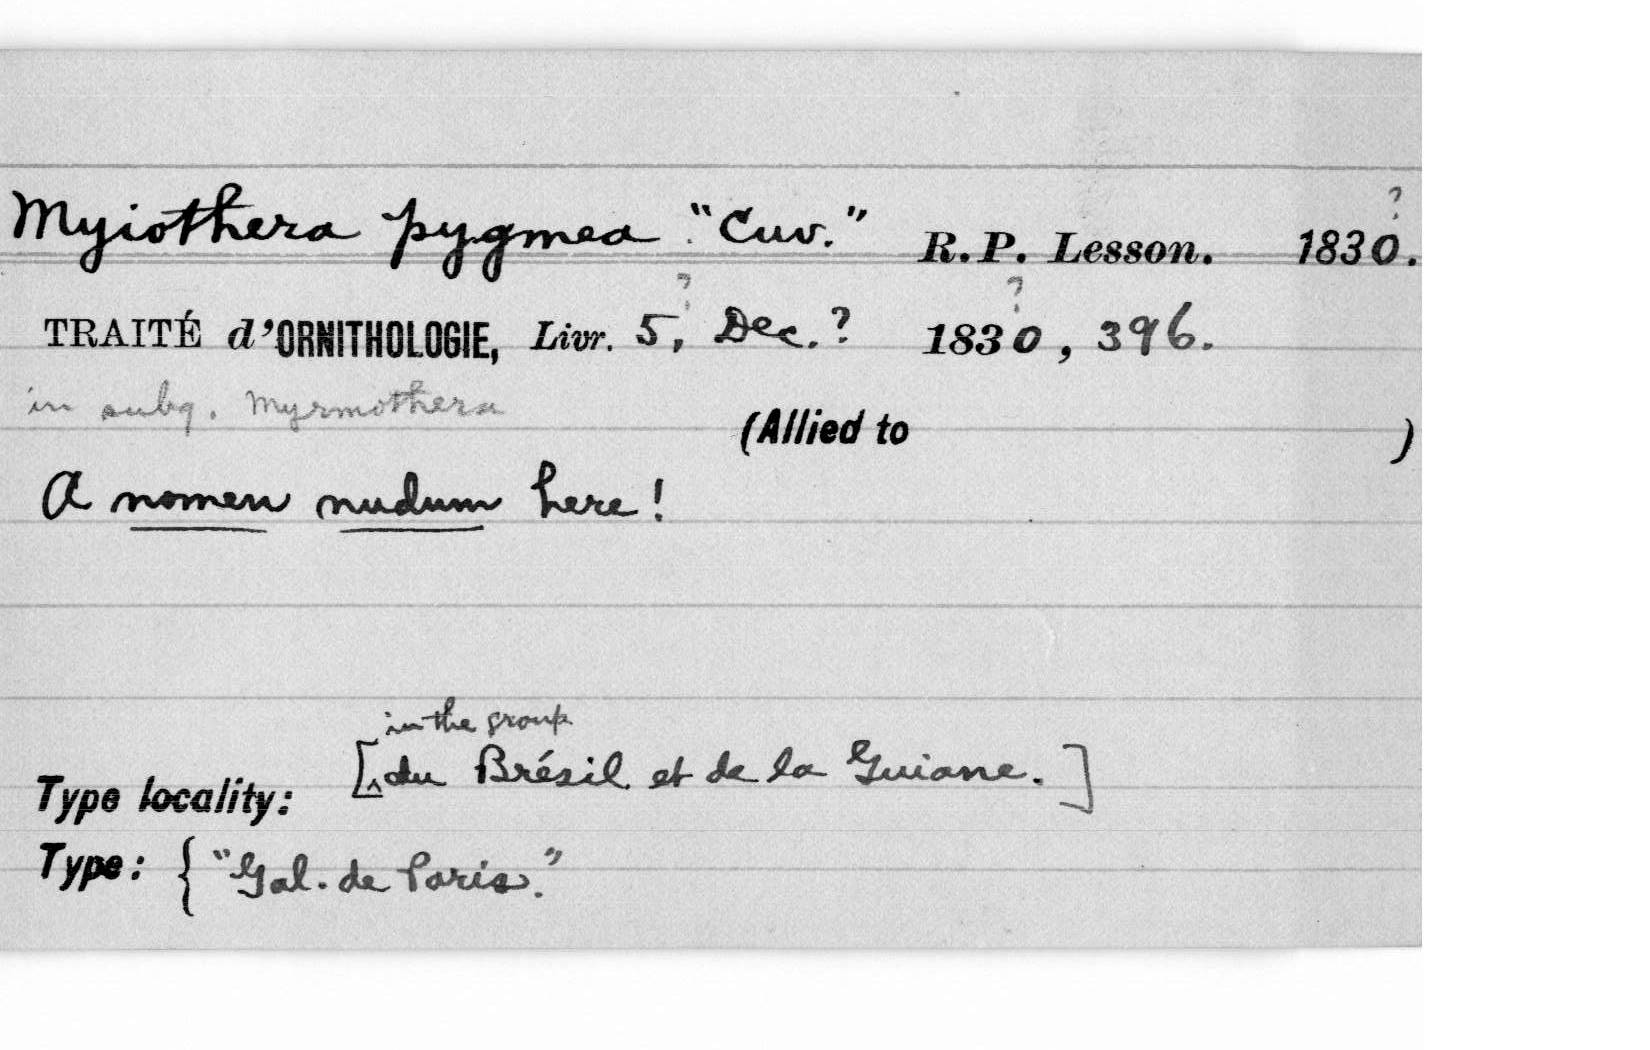 Myiothera pygmea "Cuv." R.P. Lesson. 1830?.
TRAITÉ d'ORNITHOLOGIE, Livr. 5?, Dec.? 1830?, 396.
in subg. Myrmothera
(Allied to )
A nomen nudum here!
in the group
[^du Brésil et de la Guiane.]
Type locality:
Type: { "Gal. de Paris."